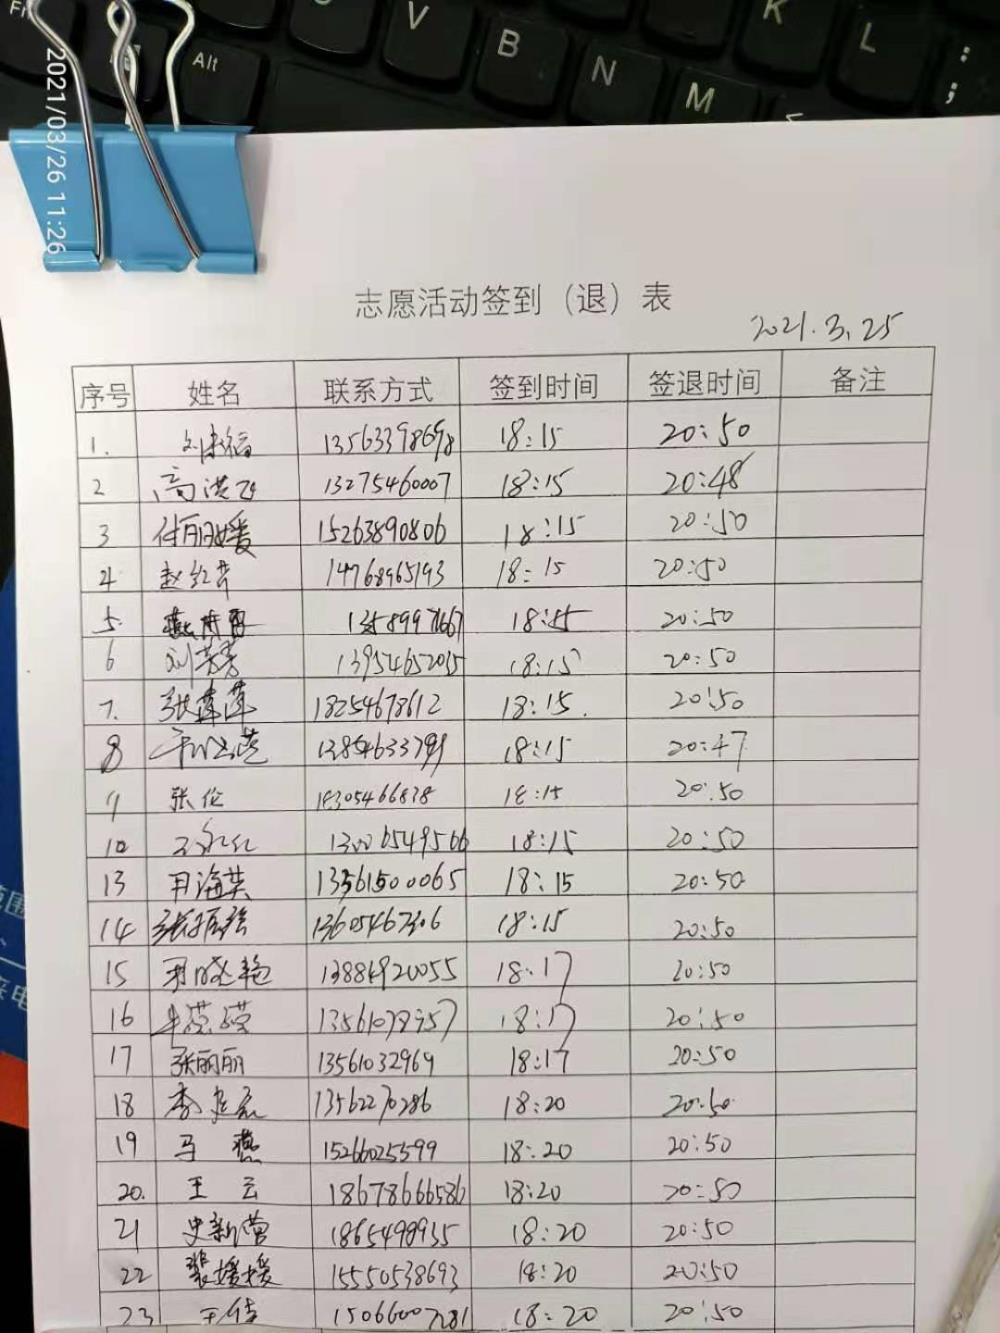 Fn
Alt
V
B
N
M
K
L
:
;
2021/03/26 11:26
志愿活动签到（退）表
2021.3.25
序号 姓名 联系方式 签到时间 签退时间 备注
1. 13563398698 18:15 20:50
2 高洪飞 13275460007 18:15 20:48
3 付丽媛 15263890806 18:15 20:50
4 赵红芹 14768965193 18:15 20:50
5. 18:15 20:50
6 刘芳芳 13954652035 18:15 20:50
7. 张莲莲 18254678612 18:15. 20:50
8 18:15 20:47
9 张伦 18305466838 18:15 20:50
10 13006549566 18:15 20:50
13 13561500065 18:15 20:50
14 18:15 20:50
15 13884920055 18:17 20:50
16 18:17 20:50
17 张丽丽 13561032969 18:17 20:50
18 13562270286 18:20 20:50
19 马燕 15266025599 18:20 20:50
20. 王云 18678666586 18:20 20:50
21 史新营 18654989355 18:20 20:50
22 裴媛媛 15550538693 18:20 20:50
23 王倩 15066007281 18:20 20:50
来电